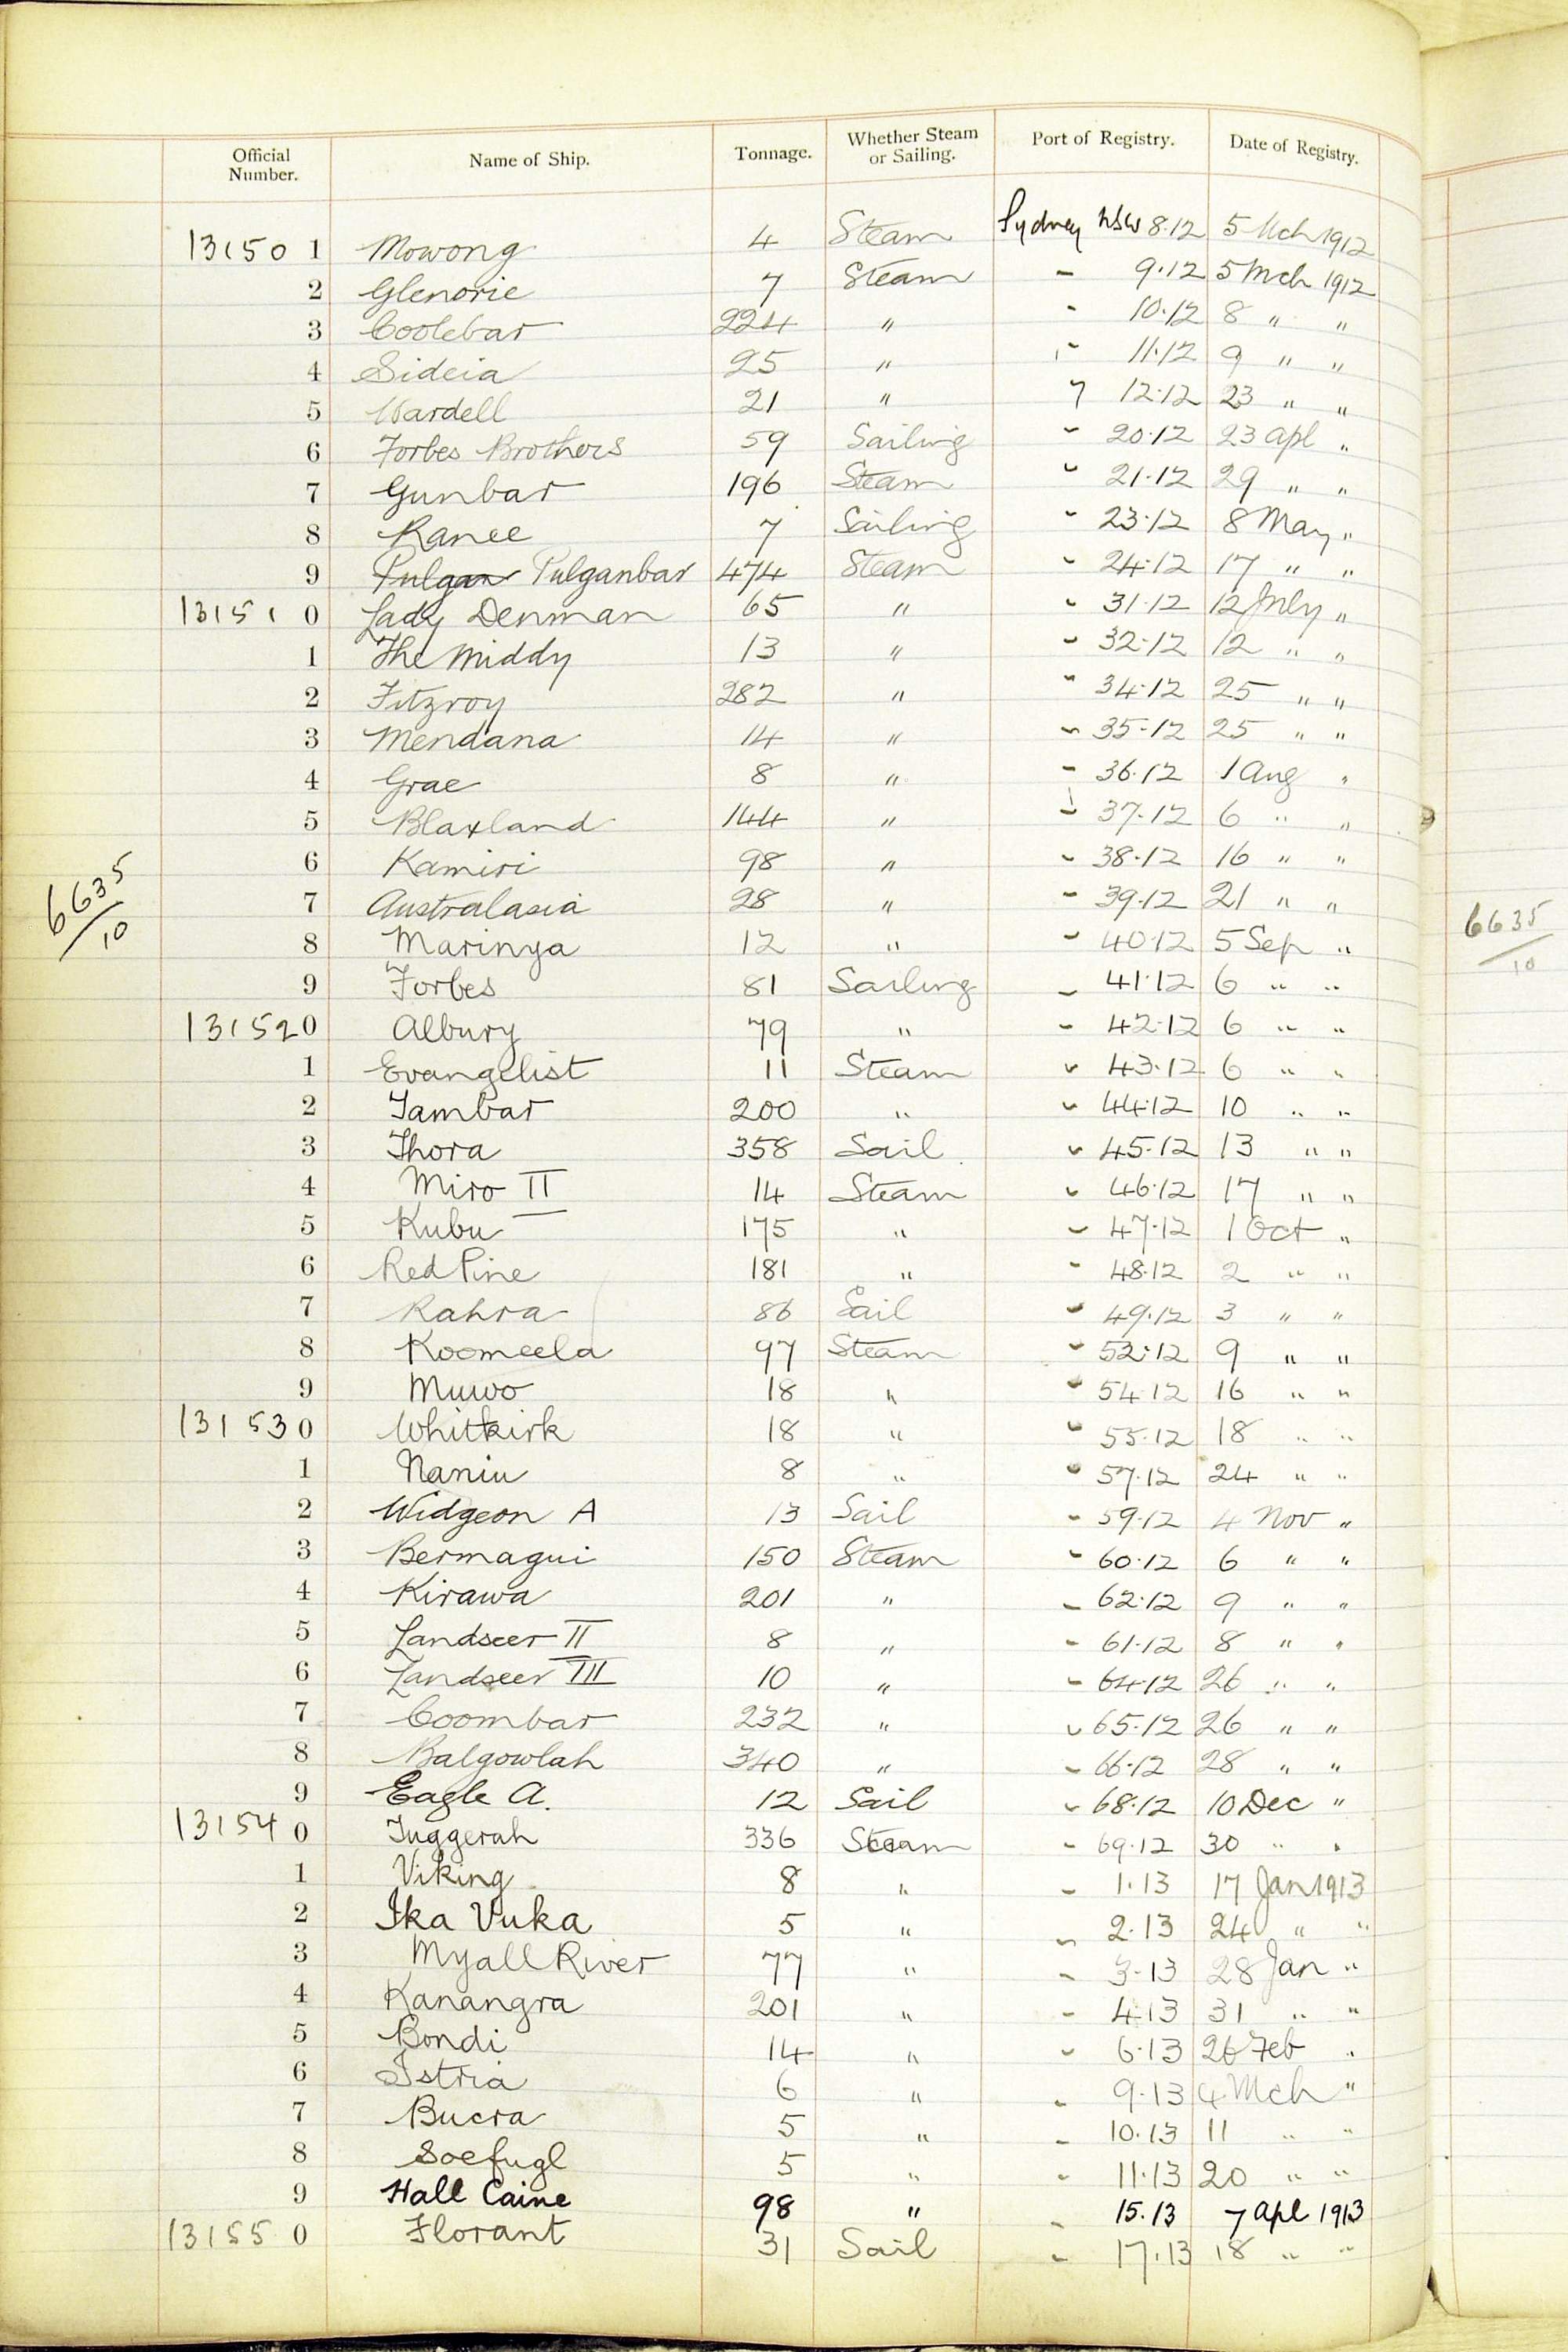 Official Number. Name of Ship. Tonnage. Whether Steam or Sailing. Port of Registry. Date of Registry.
131501 Mowong 4 Steam Sydney NSW 8.12 5 Mch 1912
2 Glenorie 7 Steam " 9.12 5 Mch 1912
3 Coolebar 224 " " 10.12 8 " "
4 Sideia 25 " " 11.12 9 " "
5 Wardell 21 " " 12.12 23 " "
6 Forbes Brothers 59 Sailing " 20.12 23 Apl "
7 Gunbar 196 Steam " 21.12 29 " "
8 Ranee 7 Sailing " 23.12 8 May "
9 Pulgan Pulganbar 474 Steam " 24.12 17 " "
131510 Lady Denman 65 " " 31.12 12 July "
1 The Middy 13 " " 32.12 12 " "
2 Fitzroy 282 " " 34.12 25 " "
3 Mendana 14 " " 35.12 25 " "
4 Grae 8 " " 36.12 1 Aug "
5 Blaxland 144 " " 37.12 6 " "
6 Kamiri 98 " " 38.12 16 " "
6635/10
7 Australasia 28 " " 39.12 21 " "
6635/10
8 Marinya 12 " " 40.12 5 Sep "
9 Forbes 81 Sailing " 41.12 6 " "
131520 Albury 79 " " 42.12 6 " "
1 Evangelist 11 Steam " 43.12 6 " "
2 Tambar 200 " " 44.12 10 " "
3 Thora 358 Sail " 45.12 13 " "
4 Miro II 14 Steam " 46.12 17 " "
5 Kubu 175 " " 47.12 1 Oct "
6 Red Pine 181 " " 48.12 2 " "
7 Rahra 86 Sail " 49.12 3 " "
8 Koomeela 97 Steam " 52.12 9 " "
9 Muwo 18 " " 54.12 16 " "
131530 Whitkirk 18 " " 55.12 18 " "
1 Naniu 8 " " 57.12 24 " "
2 Widgeon A 13 Sail " 59.12 4 Nov "
3 Bermagui 150 Steam " 60.12 6 " "
4 Kirawa 201 " " 62.12 9 " "
5 Landseer II 8 " " 61.12 8 " "
6 Landseer III 10 " " 64.12 26 " "
7 Coombar 232 " " 65.12 26 " "
8 Balgowlah 340 " " 66.12 28 " "
9 Eagle A. 12 Sail " 68.12 10 Dec "
131540 Tuggerah 336 Steam " 69.12 30 " "
1 Viking 8 " " 1.13 17 Jan 1913
2 Ika Vuka 5 " " 2.13 24 " "
3 Myall River 77 " " 3.13 28 Jan "
4 Kanangra 201 " " 4.13 31 " "
5 Bondi 14 " " 6.13 26 Feb "
6 Istria 6 " " 9.13 4 Mch "
7 Bucra 5 " " 10.13 11 " "
8 Soefugl 5 " " 11.13 20 " "
9 Hall Caine 98 " " 15.13 7 Apl 1913
131550 Florant 31 Sail " 17.13 18 " "